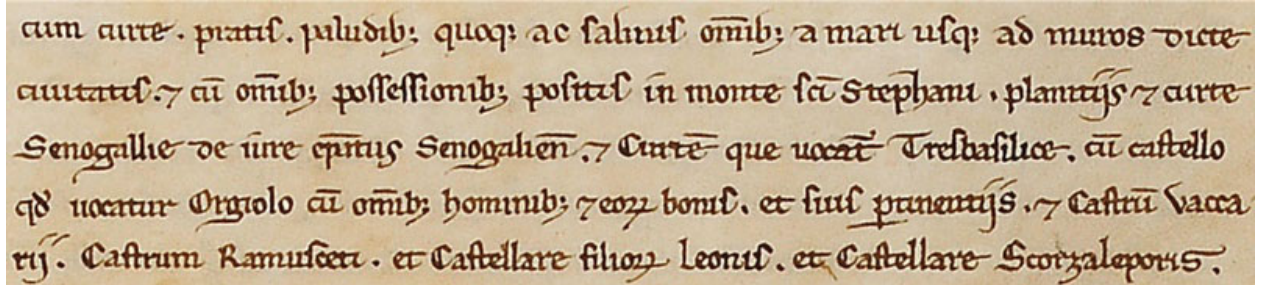 cum curte. pratis. paludib; quoq; ac salinis om̅ib; a mari usq; ad muros dicte
ciuitatis. ⁊ cu̅ om̅ib; possessionib; positis in monte sc̅i Stephani. planitijs ⁊ curte
Senogallie de iure ep̅atus Senogalien̅. ⁊ Curte̅ que uocat̅ Tresbasilice. cu̅ castello
qd̅ uocatur Orgiolo cu̅ om̅ib; hominib; ⁊ eoꝝ bonis. et suis ꝑtinentijs. ⁊ Castru̅ Vacca
rij. Castrum Ramusceti. et Castellare filioꝝ Leonis. et Castellare Scorzaleporis.